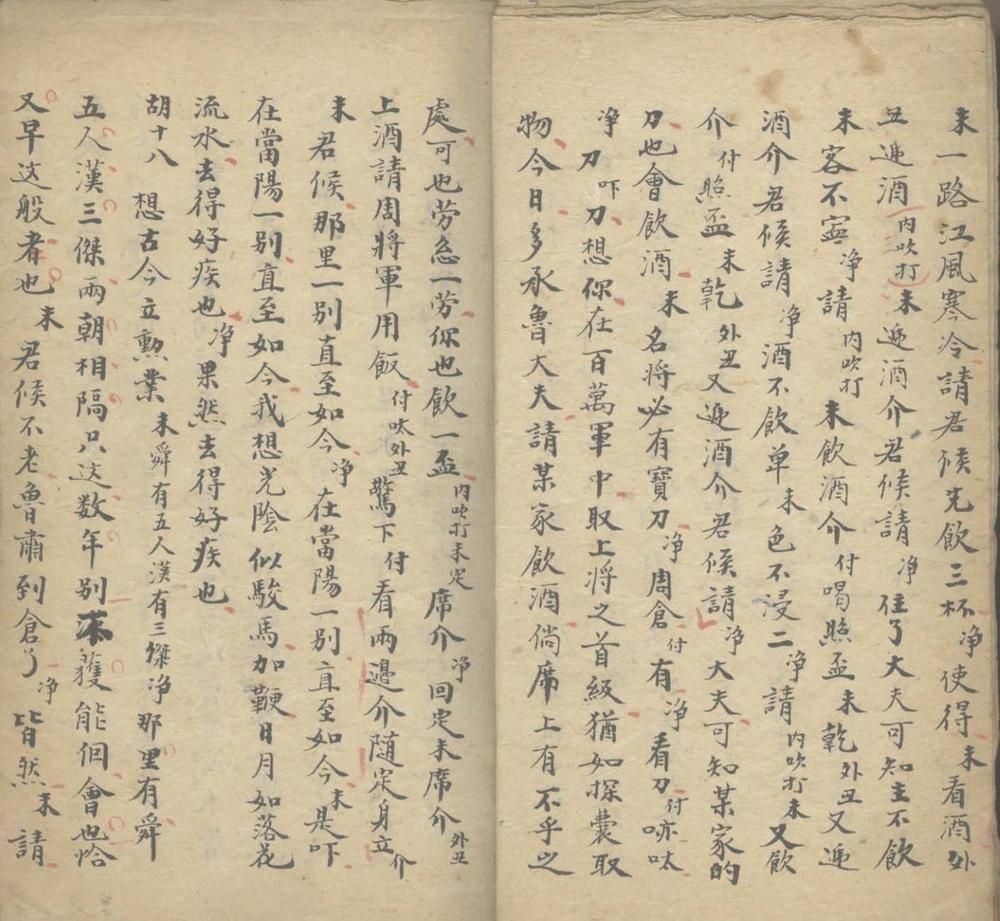 末一路江風寒冷請君候先飲三杯净使得末看酒外
丑遞酒内吹打末遞酒介君候請净住了大夫可知主不飲
末客不寧净請内吹打末飲酒介付喝照盃末乾外丑又遞
酒介君候請净酒不飲单末色不浸二净請内吹打末又飲
介付照盃末乾外丑又遞酒介君候請净大夫可知某家的
刀也會飲酒末名將必有寶刀净周倉付有净看刀付㖡呔
净刀吓刀想你在百萬軍中取上將之首級猶如探囊取
物今日多承魯大夫請某家飲酒倘席上有不乎之
處可也劳怎一劳你也飲一盃内吹打末定席介净回定末席介外丑
上酒請周將軍用飯付呔外丑驚下付看兩邉介随定身立介
末君候那里一别直至如今净在當陽一别直至如今末是吓
在當陽一别直至如今我想光陰似駿馬加鞭日月如落花
流水去得好疾也净果然去得好疾也
胡十八想古今立勳業末舜有五人漢有三傑净那里有舜
五人漢三傑兩朝相隔只这数年别不獲能個會也恰
又早这般者也末君候不老魯肅到倉了净皆然末請